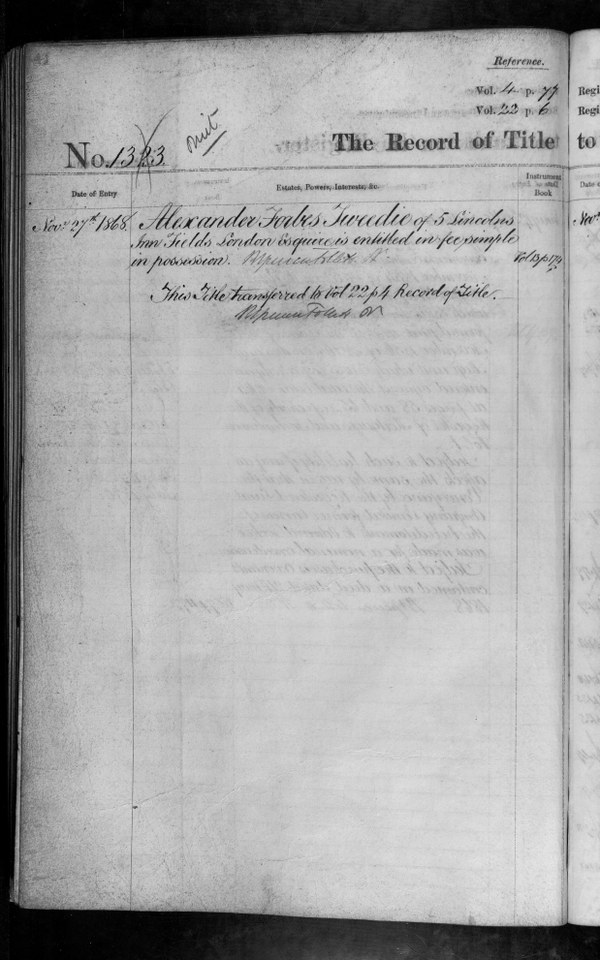 Reference.
Vol. 4 p. 77
Vol. 22 p. 6
No. 1323
The Record of Title
Date of Entry
Estates, Powers, Interests, &c.
Instrument Book
Novr 27th 1868. Alexander Forbes Tweedie of 5 Lincolns
Inn Fields London Esquire is entitled in fee simple
in possession.
Vol 13 p 174
This Title transferred to Vol 22 p 4 Record of Title.
Regi
Regi
to
Date o
Novr